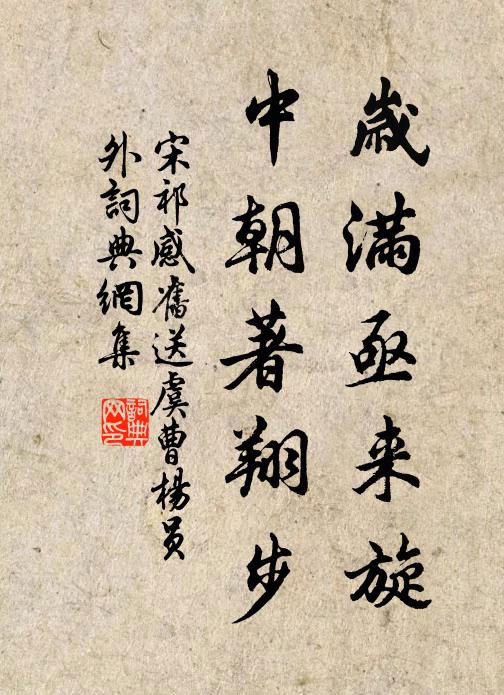 歲滿亟来旋
中朝著翔步
宋祁感舊送虞曹楊員
外詞典網集
詞典网印